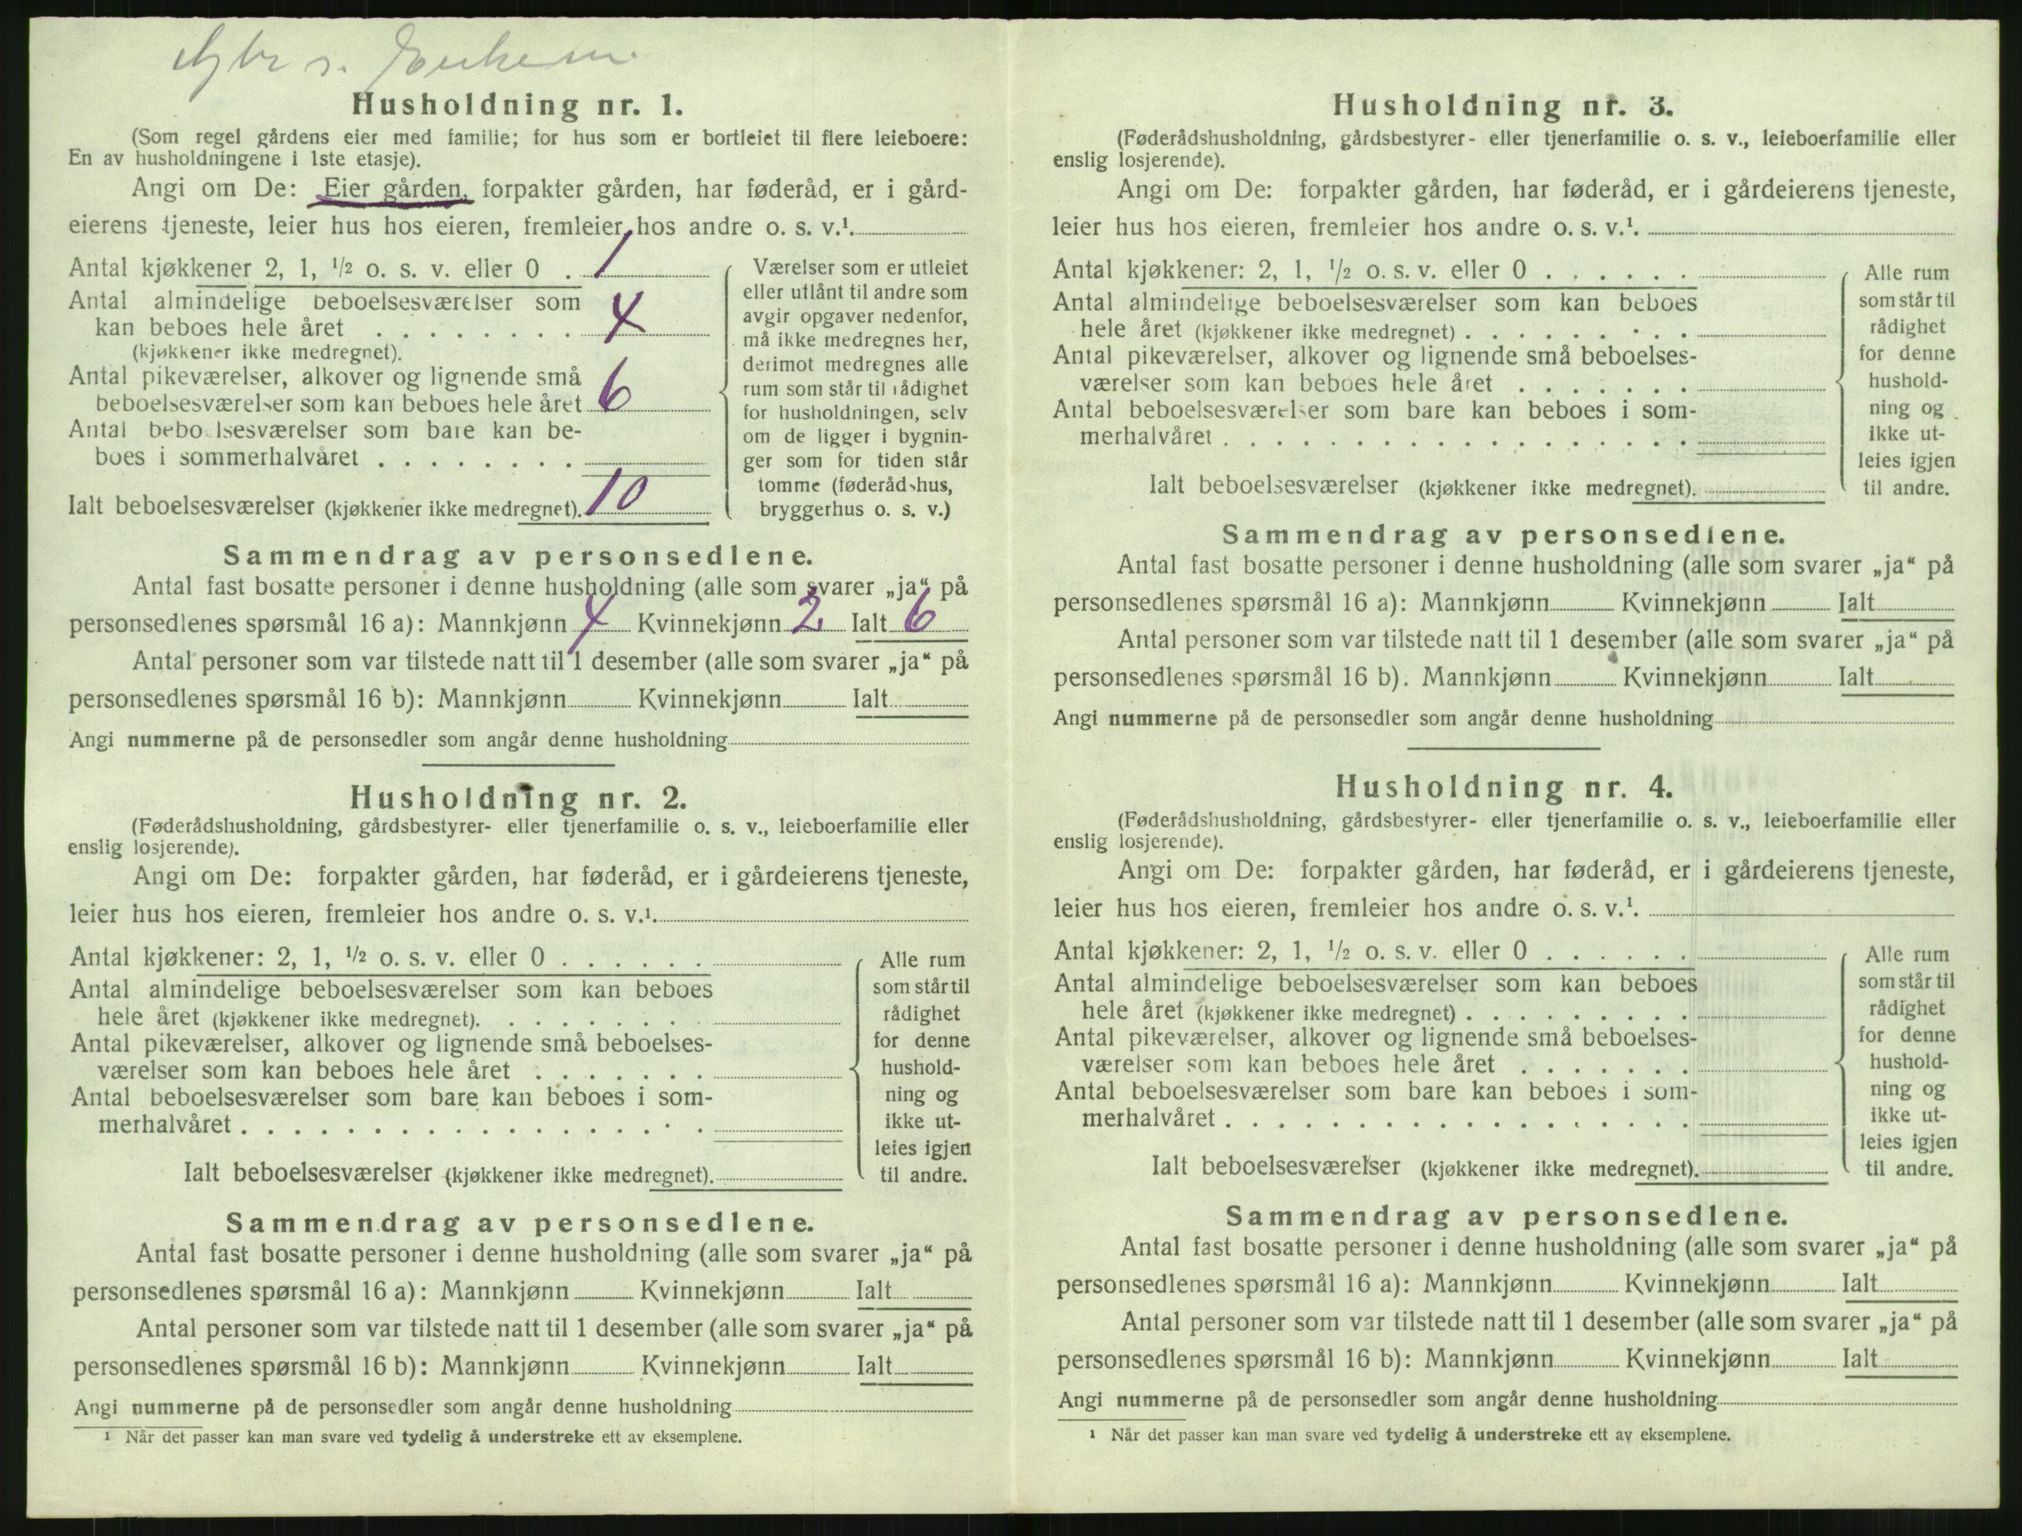 Husholdning nr. 1.
(Som regel gårdens eier med familie; for hus som er bortleiet til flere leieboere:
En av husholdningene i 1ste etasje).
Angi om De: Eier gården, forpakter gården, har føderåd, er i gård-
eierens tjeneste, leier hus hos eieren, fremleier hos andre o. s. v.¹.
Antal kjøkkener 2, 1, ½ o. s. v. eller 0 . 1
Antal almindelige beboelsesværelser som
kan beboes hele året . . . . . . . . 4
(kjøkkener ikke medregnet).
Antal pikeværelser, alkover og lignende små
beboelsesværelser som kan beboes hele året 6
Antal beboelsesværelser som bare kan be-
boes i sommerhalvåret . . . . . . . .
Ialt beboelsesværelser (kjøkkener ikke medregnet). 10
Værelser som er utleiet
eller utlånt til andre som
avgir opgaver nedenfor,
må ikke medregnes her,
derimot medregnes alle
rum som står til rådighet
for husholdningen, selv
om de ligger i bygnin-
ger som for tiden står
tomme (føderådshus,
bryggerhus o. s. v.)
Sammendrag av personsedlene.
Antal fast bosatte personer i denne husholdning (alle som svarer „ja“ på
personsedlenes spørsmål 16 a): Mannkjønn 4 Kvinnekjønn 2 Ialt 6
Antal personer som var tilstede natt til 1 desember (alle som svarer „ja“ på
personsedlenes spørsmål 16 b): Mannkjønn Kvinnekjønn Ialt
Angi nummerne på de personsedler som angår denne husholdning
Husholdning nr. 2.
(Føderådshusholdning, gårdsbestyrer- eller tjenerfamilie o. s. v., leieboerfamilie eller
enslig losjerende).
Angi om De: forpakter gården, har føderåd, er i gårdeierens tjeneste,
leier hus hos eieren, fremleier hos andre o. s. v.¹.
Antal kjøkkener: 2, 1, ½ o. s. v. eller 0 . . . . . .
Antal almindelige beboelsesværelser som kan beboes
hele året (kjøkkener ikke medregnet). . . . . . . . .
Antal pikeværelser, alkover og lignende små beboelses-
værelser som kan beboes hele året . . . . . . .
Antal beboelsesværelser som bare kan beboes i som-
merhalvåret . . . . . . . . . . . . . . . . . .
Ialt beboelsesværelser (kjøkkener ikke medregnet).
Alle rum
som står til
rådighet
for denne
hushold-
ning og
ikke ut-
leies igjen
til andre.
Sammendrag av personsedlene.
Antal fast bosatte personer i denne husholdning (alle som svarer „ja“ på
personsedlenes spørsmål 16 a): Mannkjønn Kvinnekjønn Ialt
Antal personer som var tilstede natt til 1 desember (alle som svarer „ja“ på
personsedlenes spørsmål 16 b): Mannkjønn Kvinnekjønn Ialt
Angi nummerne på de personsedler som angår denne husholdning
¹ Når det passer kan man svare ved tydelig å understreke ett av eksemplene.
Husholdning nr. 3.
(Føderådshusholdning, gårdsbestyrer- eller tjenerfamilie o. s. v., leieboerfamilie eller
enslig losjerende).
Angi om De: forpakter gården, har føderåd, er i gårdeierens tjeneste,
leier hus hos eieren, fremleier hos andre o. s. v.¹.
Antal kjøkkener: 2, 1, ½ o. s. v. eller 0 . . . . . .
Antal almindelige beboelsesværelser som kan beboes
hele året (kjøkkener ikke medregnet) . . . . . . . . .
Antal pikeværelser, alkover og lignende små beboelses-
værelser som kan beboes hele året . . . . . . .
Antal beboelsesværelser som bare kan beboes i som-
merhalvåret . . . . . . . . . . . . . . . . . .
Ialt beboelsesværelser (kjøkkener ikke medregnet).
Alle rum
som står til
rådighet
for denne
hushold-
ning og
ikke ut-
leies igjen
til andre.
Sammendrag av personsedlene.
Antal fast bosatte personer i denne husholdning (alle som svarer „ja“ på
personsedlenes spørsmål 16 a): Mannkjønn Kvinnekjønn Ialt
Antal personer som var tilstede natt til 1 desember (alle som svarer „ja“ på
personsedlenes spørsmål 16 b). Mannkjønn Kvinnekjønn Ialt
Angi nummerne på de personsedler som angår denne husholdning
Husholdning nr. 4.
(Føderådshusholdning, gårdsbestyrer- eller tjenerfamilie o. s. v., leieboerfamilie eller
enslig losjerende).
Angi om De: forpakter gården, har føderåd, er i gårdeierens tjeneste,
leier hus hos eieren, fremleier hos andre o. s. v.¹.
Antal kjøkkener: 2, 1, ½ o. s. v. eller 0 . . . . . .
Antal almindelige beboelsesværelser som kan beboes
hele året (kjøkkener ikke medregnet) . . . . . . . . .
Antal pikeværelser, alkover og lignende små beboelses-
værelser som kan beboes hele året . . . . . . .
Antal beboelsesværelser som bare kan beboes i som-
merhalvåret . . . . . . . . . . . . . . . . . .
Ialt beboelsesværelser (kjøkkener ikke medregnet).
Alle rum
som står til
rådighet
for denne
hushold-
ning og
ikke ut-
leies igjen
til andre.
Sammendrag av personsedlene.
Antal fast bosatte personer i denne husholdning (alle som svarer „ja“ på
personsedlenes spørsmål 16 a): Mannkjønn Kvinnekjønn Ialt
Antal personer som var tilstede natt til 1 desember (alle som svarer „ja“ på
personsedlenes spørsmål 16 b): Mannkjønn Kvinnekjønn Ialt
Angi nummerne på de personsedler som angår denne husholdning
¹ Når det passer kan man svare ved tydelig å understreke ett av eksemplene.